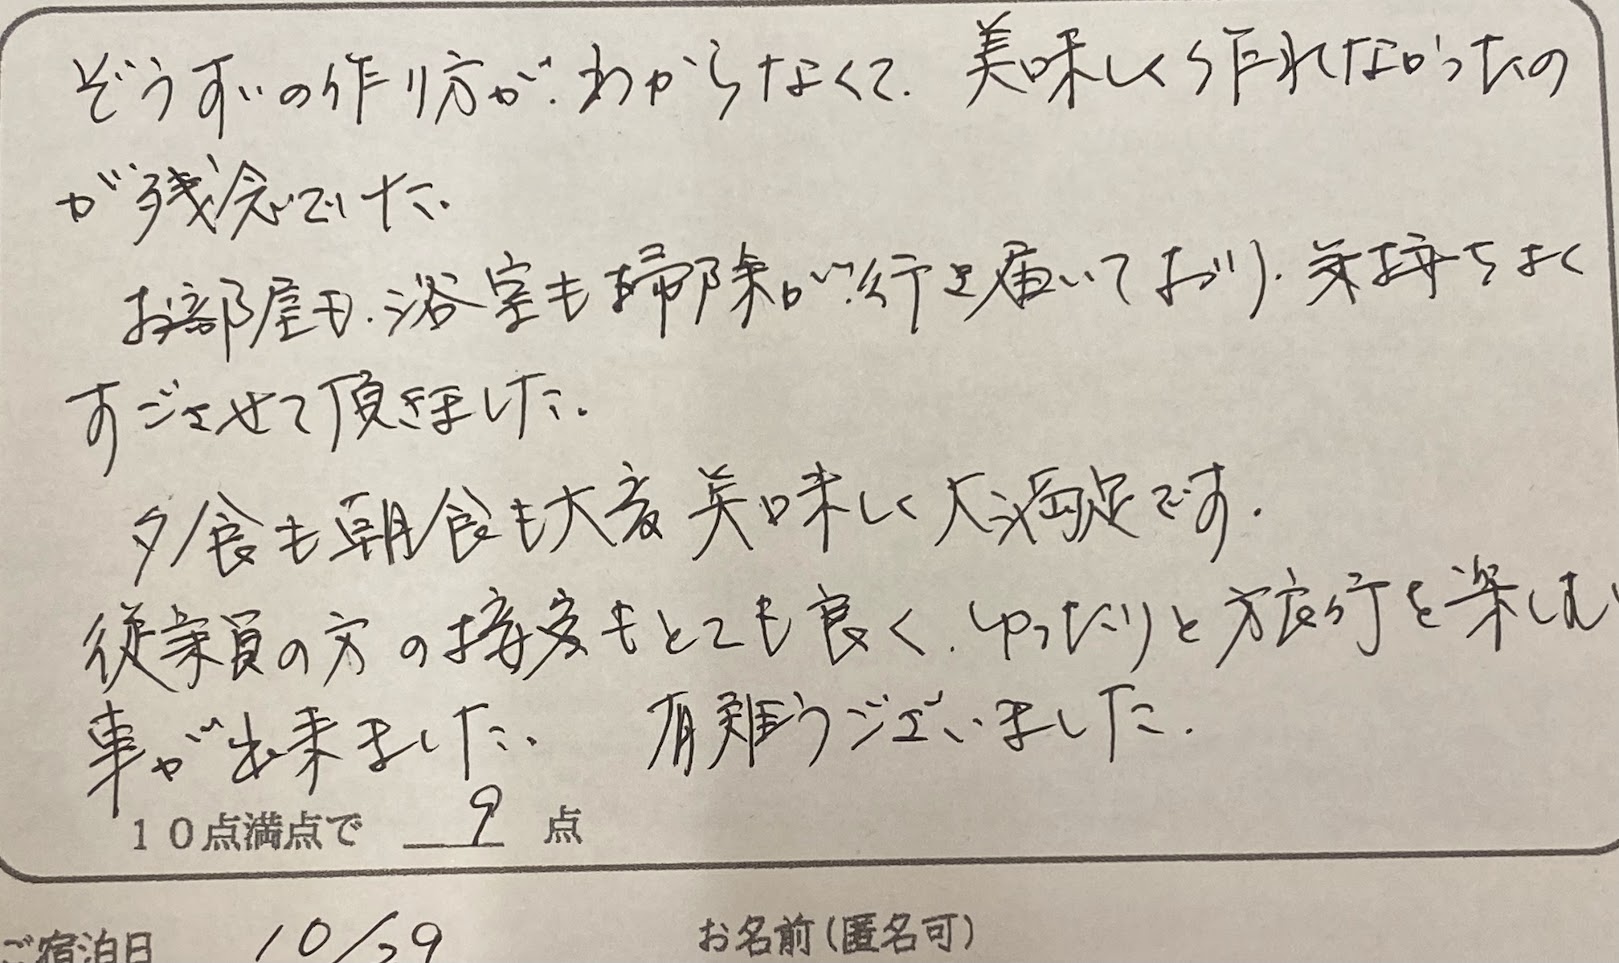 ぞうすいの作り方が、わからなくて、美味しく作れなかったの
が残念でした。
お部屋も、浴室も掃除が行き届いており、気持ちよく
すごさせて頂きました。
夕食も朝食も大変美味しく大満足です。
従業員の方の接客もとても良く、ゆったりと旅行を楽しむ
事が出来ました。 有難うございました。
10点満点で 9 点
ご宿泊日 10/29 お名前(匿名可)